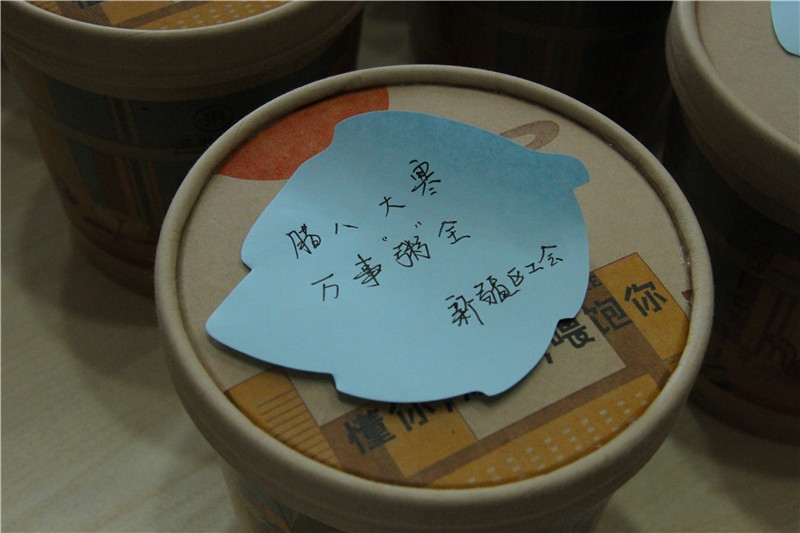 腊八大寒
万事“粥”全
新疆区工会
懂你
喂饱你